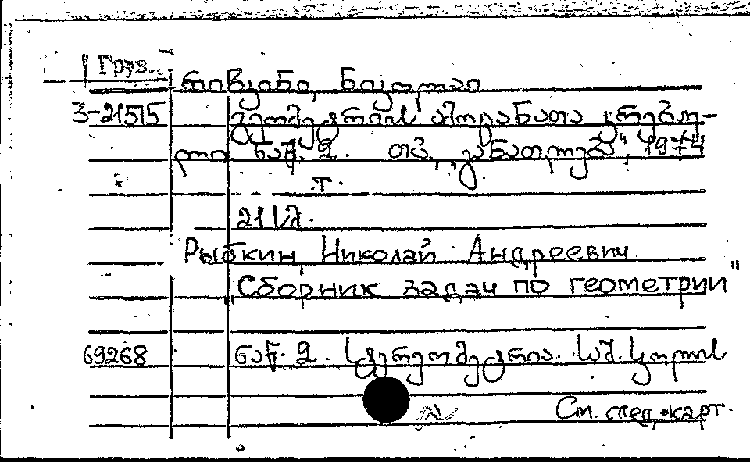 Груз.
რიბკინი, ნიკოლაი
З-21515 გეომეტრიის ამოცანათა კრებუ-
ლი ნაწ. 2. თბ., „განათლება", 1974
т.
211გ.
Рыбкин, Николай Андреевич
"Сборник задач по геометрии"
69268 ნაწ. 2. სტერეომეტრია. საშ. სკოლის
См. след. карт.